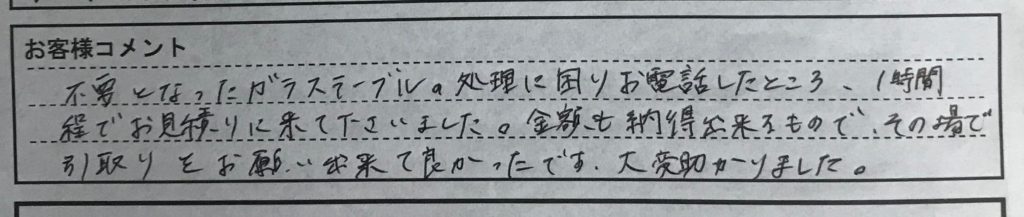 お客様コメント
不要となったガラステーブルの処理に困りお電話したところ、1時間
程でお見積りに来て下さいました。金額も納得出来るもので、その場で
引取りをお願い出来て良かったです、大変助かりました。